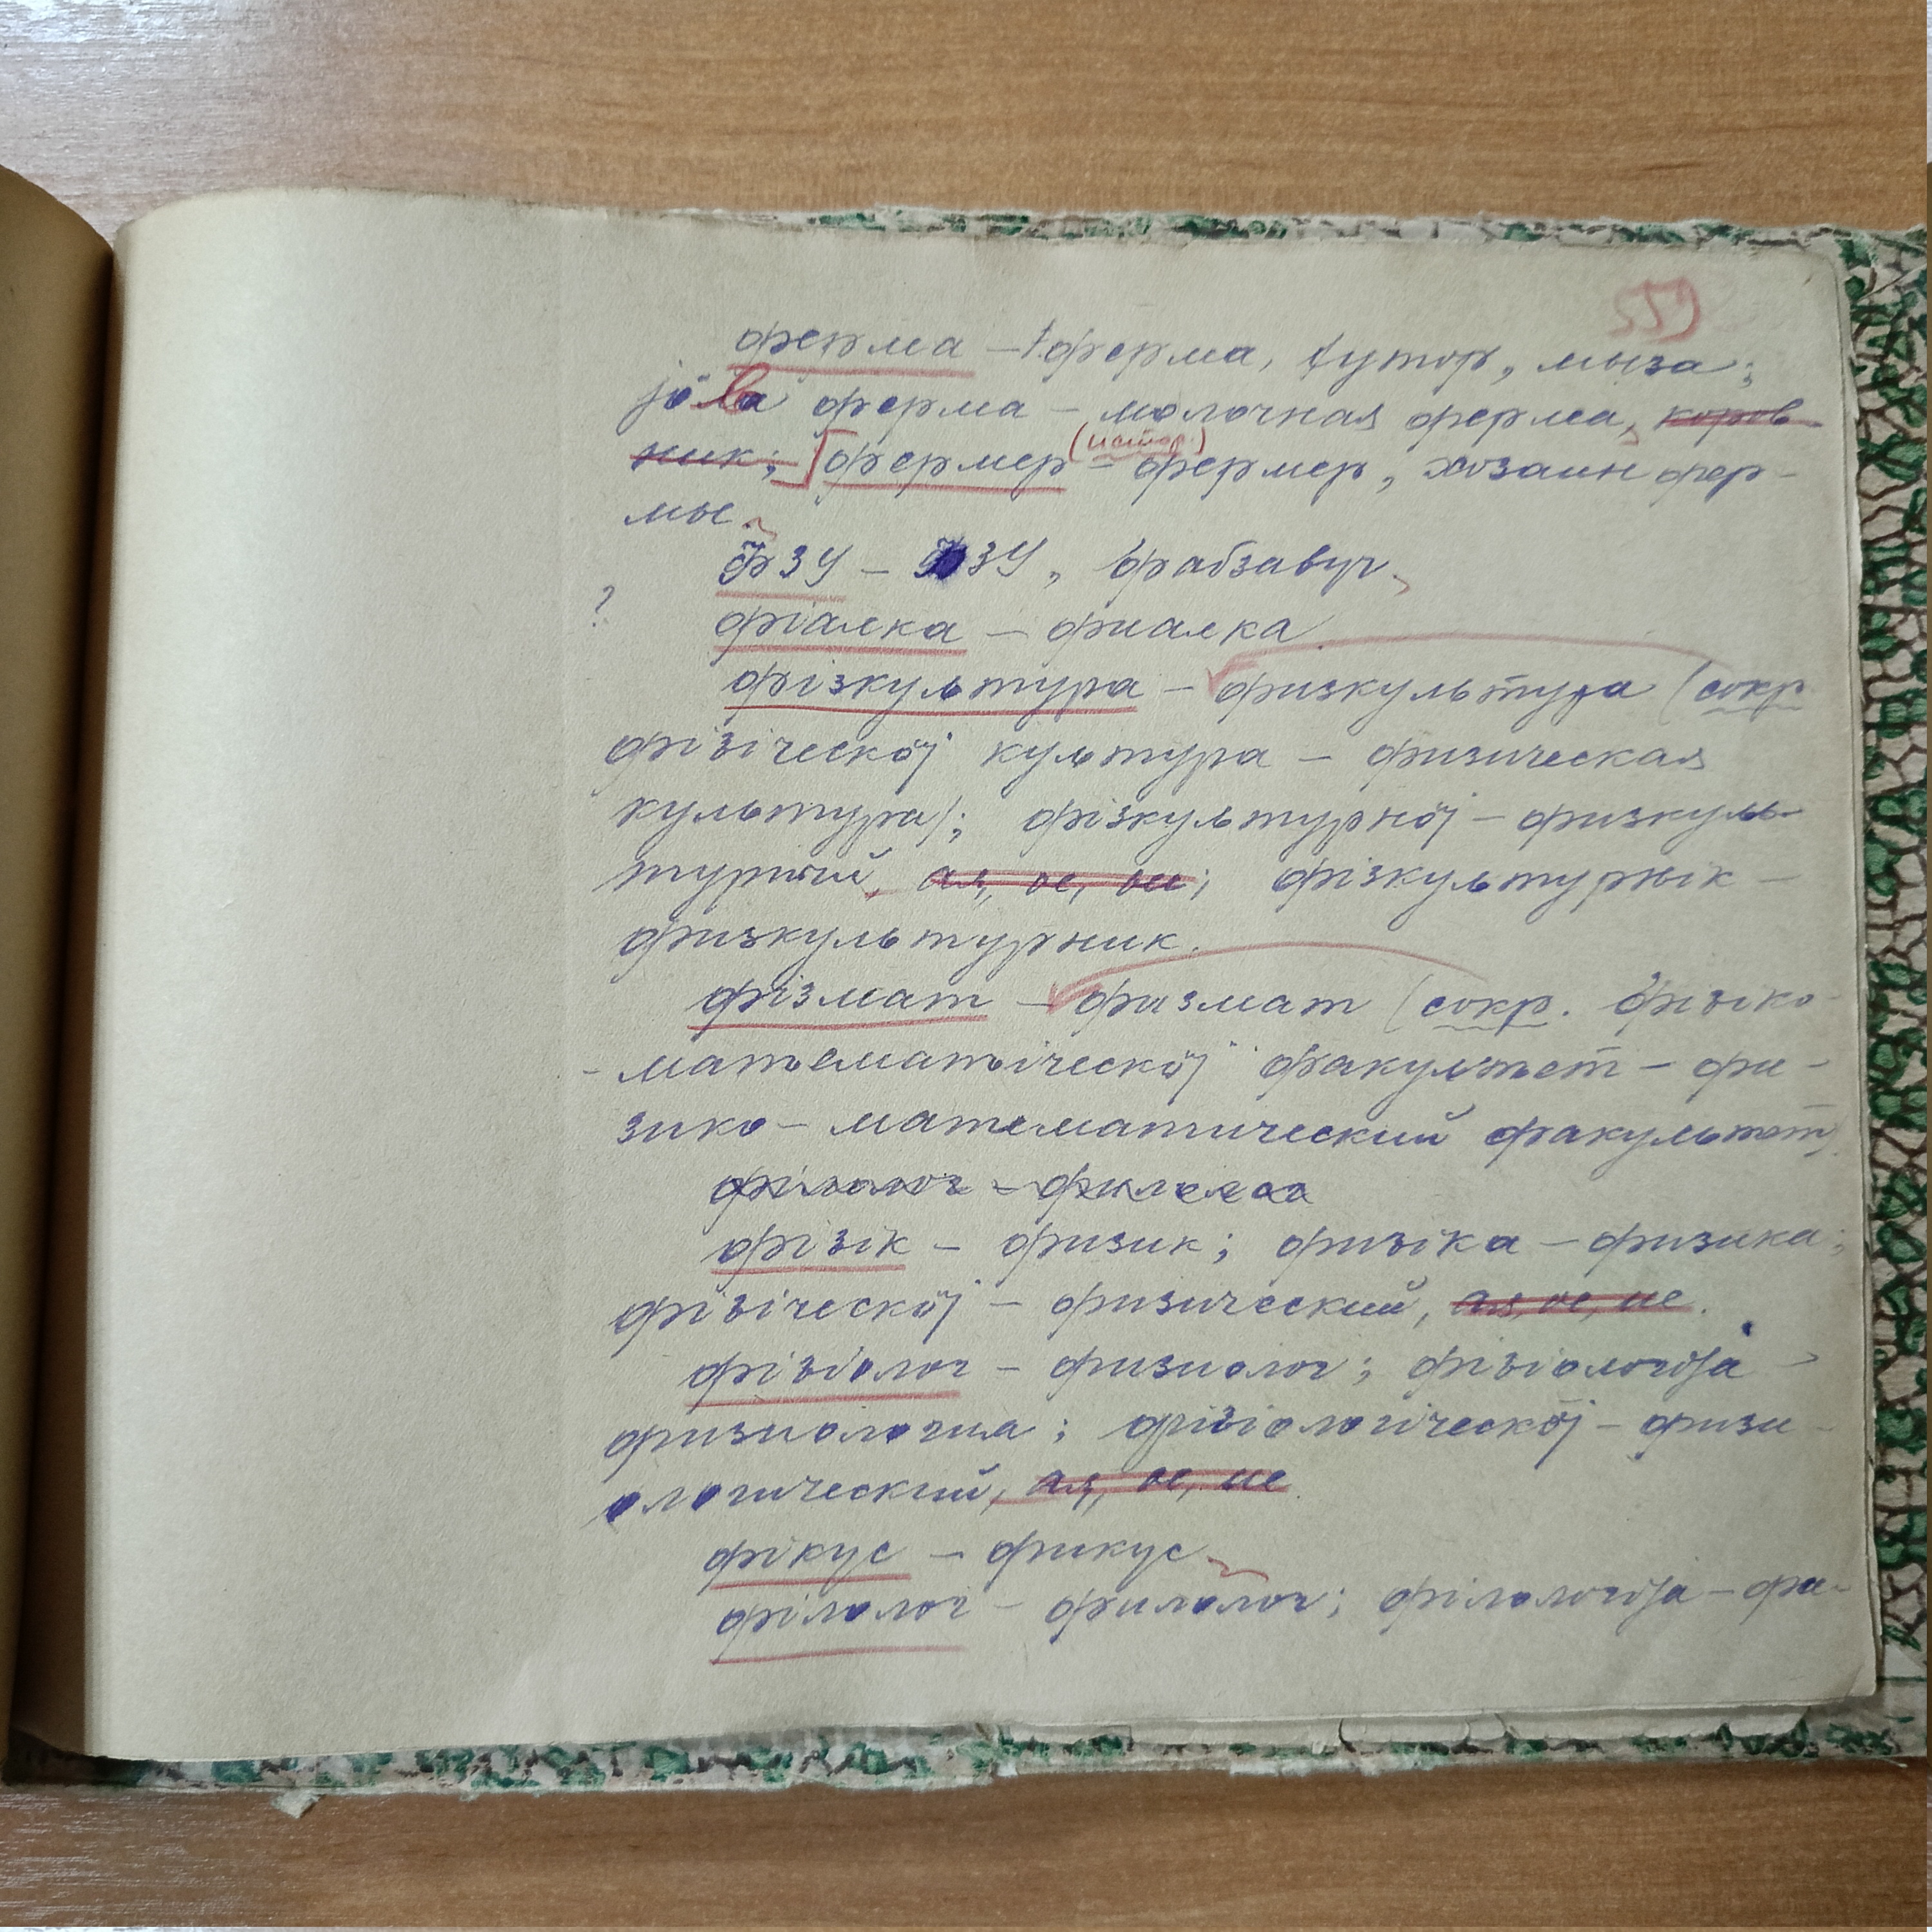 559
ферма – ферма, хутор, мыза;
jöла ферма – молочная ферма, коров-
ник; [фермер (истор.) – фермер, хозаин фер-
мы.
ФЗУ – ФЗУ, фабзавуч.
? фіалка – фиалка
фізкультура – физкультура (сокр.
фізіческöj культура – физическая
культура); фізкультурнöj – физкуль-
турный, ая, ое, ые; фізкультурнік –
физкультурник.
фізмат – физмат (сокр. фізіко-
-математіческöj факультет – фи-
зико-математический факультет).
фізік – физик; физіка – физика;
фізіческöj – физический, ая, ое, ие.
фізіолог – физиолог; фізіологіjа –
физиология; фізіологіческöj – физи-
ологический, ая, ое, ие.
фікус – фикус.
філолог – филолог; філологіjа – фи-